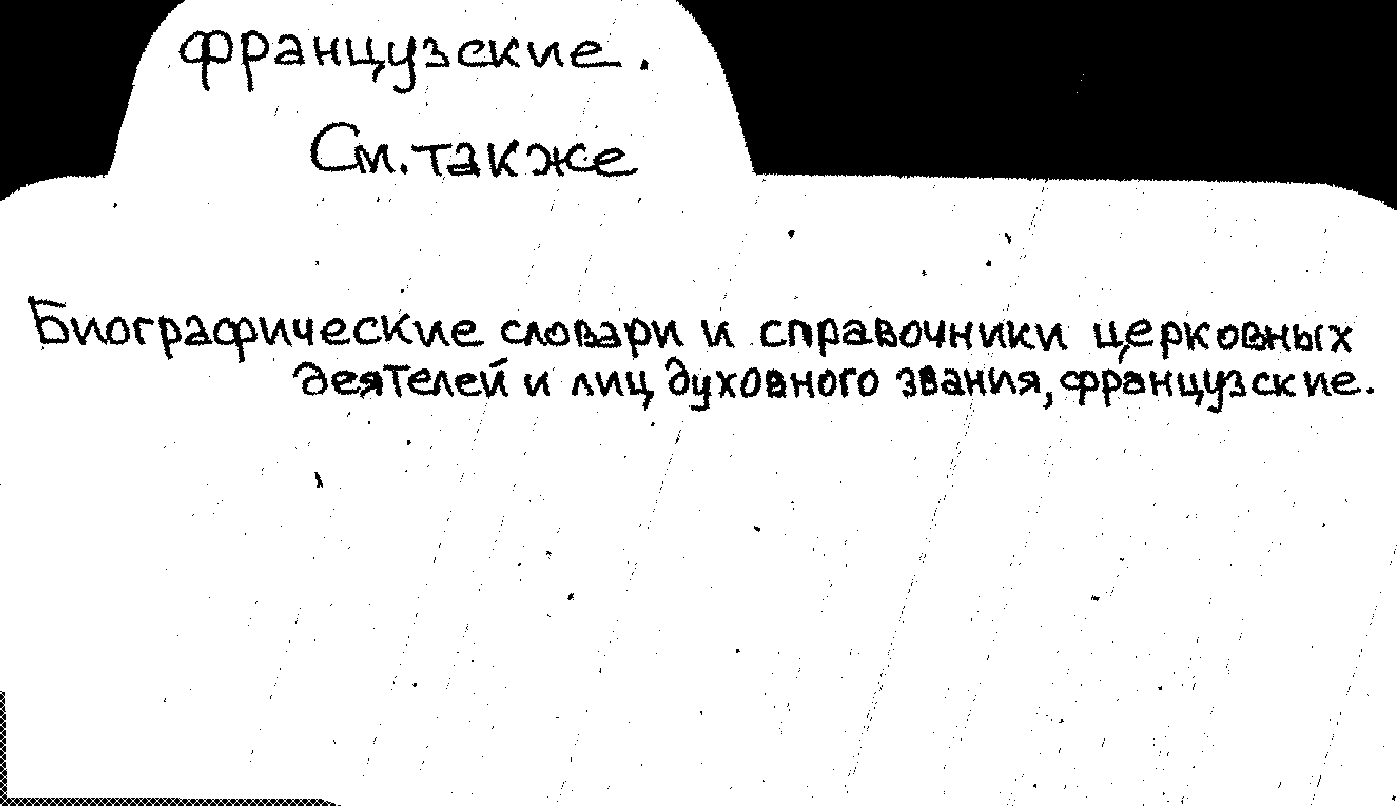 французские.
См. также
Биографические словари и справочники церковных
деятелей и лиц духовного звания, французские.